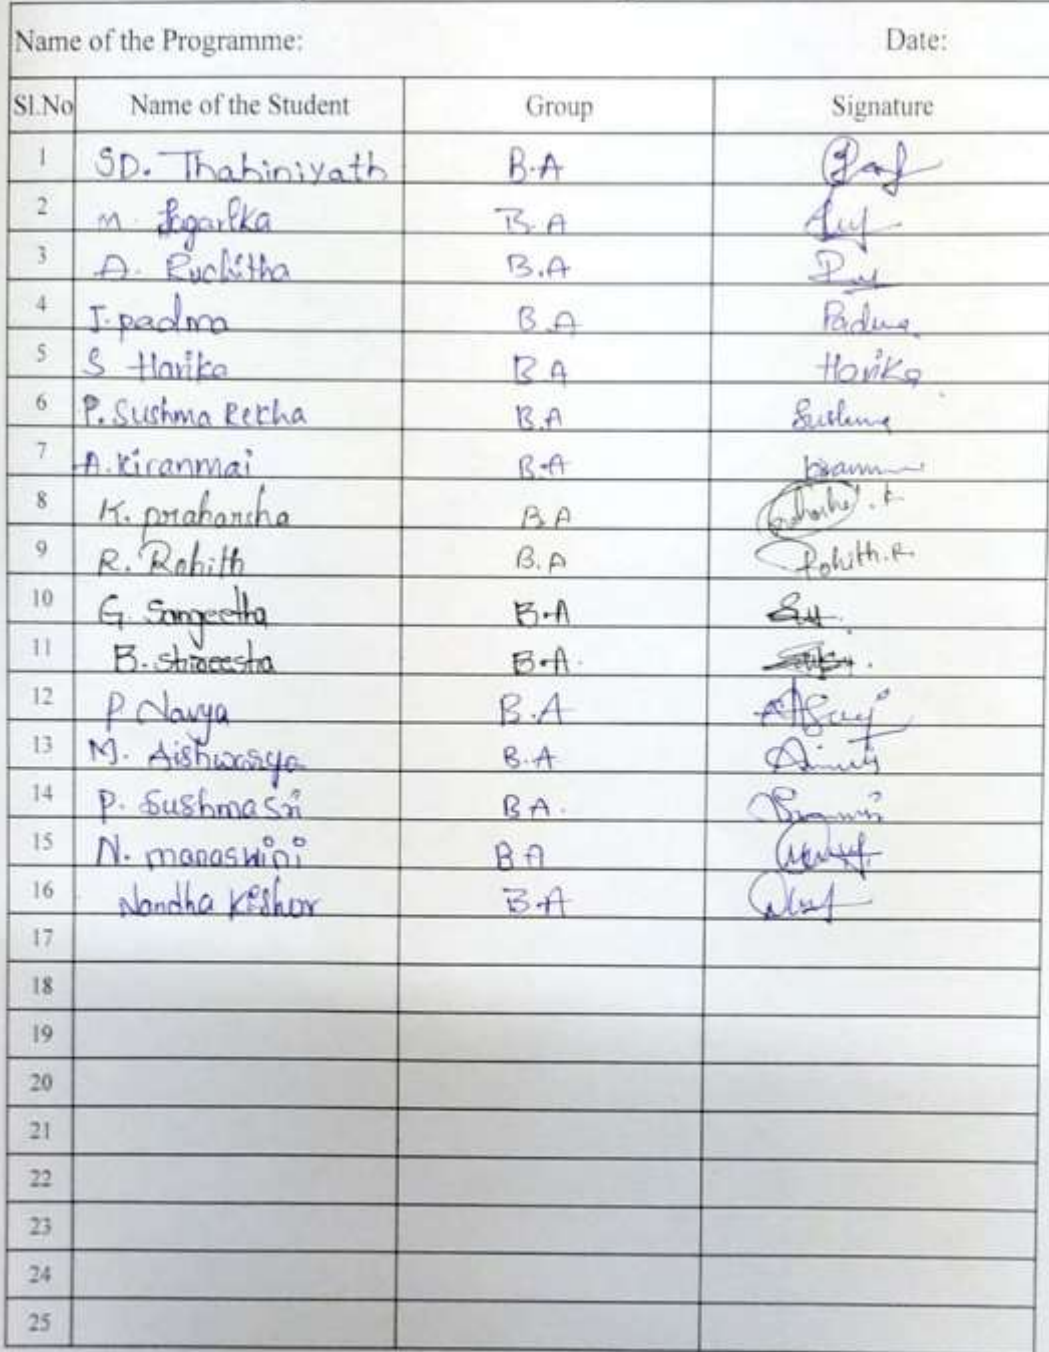 Name of the Programme: Date:
Sl.No Name of the Student Group Signature
1 SD. Thahiniyath B.A
2 M. B.A
3 A. Ruchitha B.A
4 J. padma B.A Padma
5 S Harika B.A Harika
6 P. Sushma Rekha B.A Sushma
7 A. Kiranmai B.A
8 K. praharsha B.A
9 R. Rohith B.A Rohith.R
10 G. Sangeetha B.A
11 B. B.A.
12 P Navya B.A
13 M. Aishwarya B.A
14 P. Sushma Sri B A.
15 N. manaswini B A
16 Nandha Kishor B.A
17
18
19
20
21
22
23
24
25